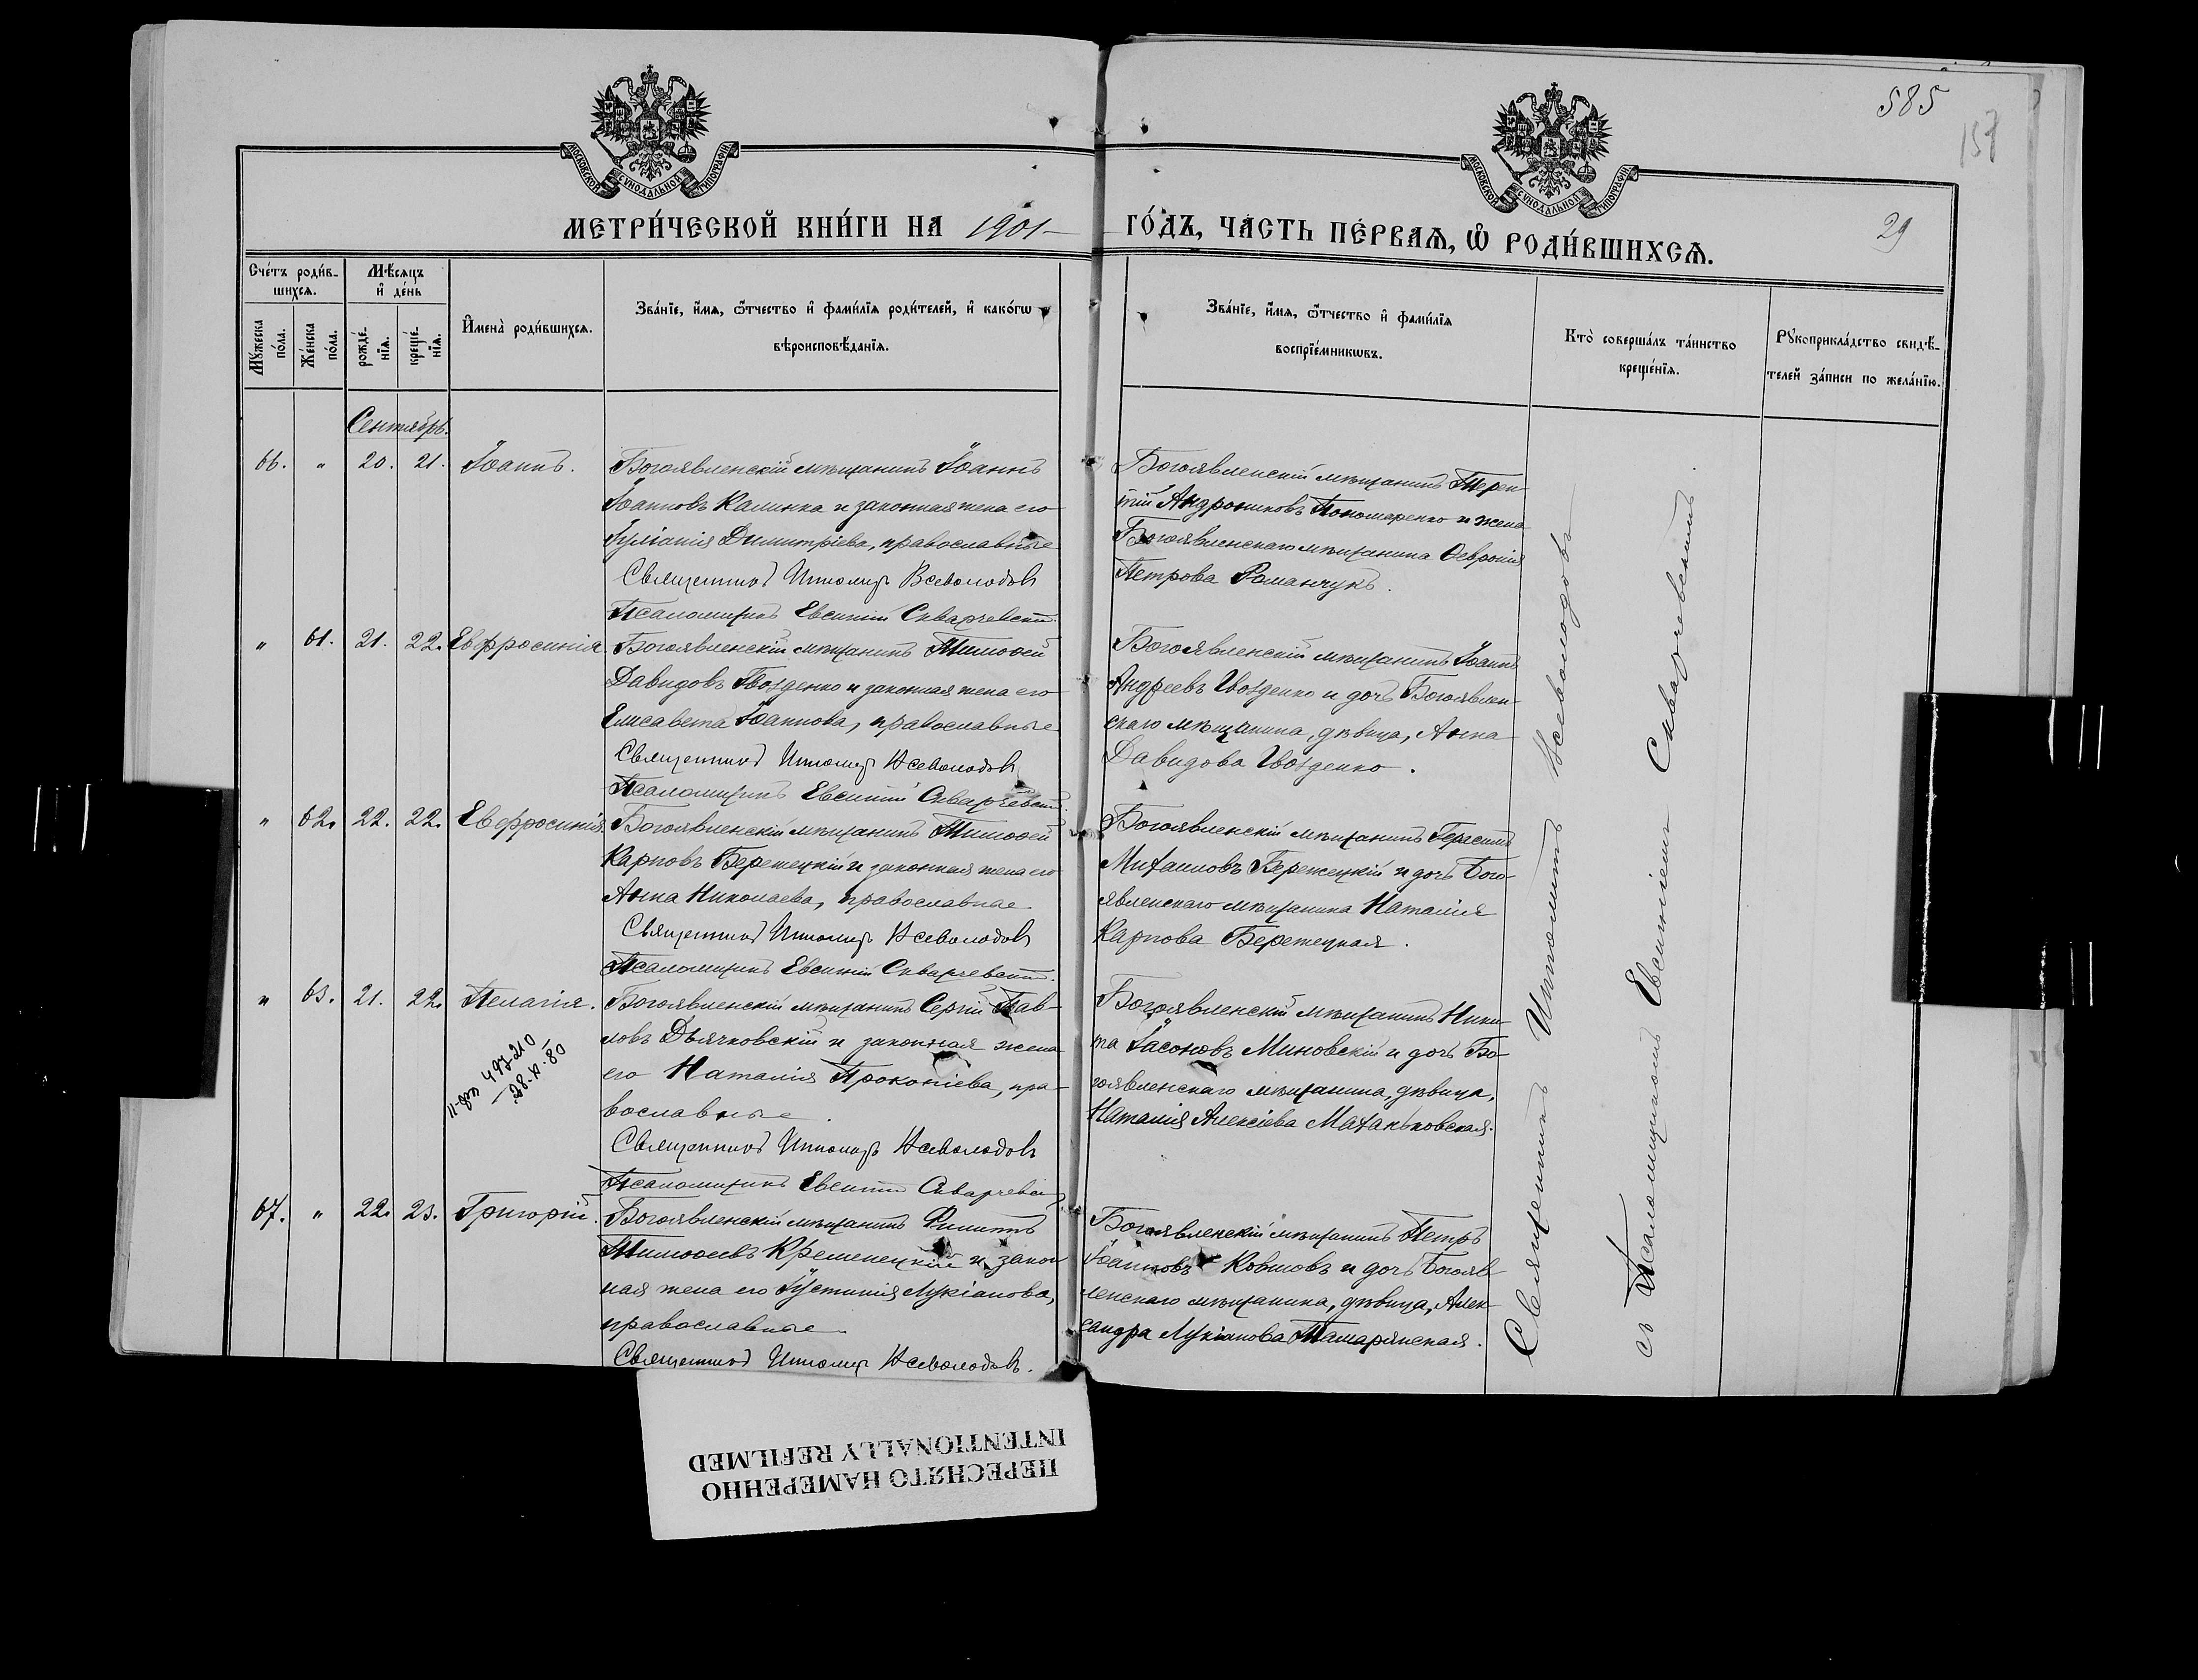 585
157
29
МОСКОВСКОЙ СУНОДАЛЬНОЙ ТИПОГРАФІИ
МОСКОВСКОЙ СУНОДАЛЬНОЙ ТИПОГРАФІИ
МЕТРИ́ЧЕСКОЙ КНИ́ГИ НА 1901 ГО́ДЪ, ЧА́СТЬ ПЕ́РВАѦ, Ѡ҆ РОДИ́ВШИХСѦ.
Сче́тъ роди́вшихсѧ.
Мꙋ́жеска по́ла.
Же́нска по́ла.
Мѣ́сѧцъ и҆ де́нь
рожде́нїѧ.
креще́нїѧ.
И҆мена̀ роди́вшихсѧ.
Зва́нїе, и҆́мѧ, ѻ҆́тчество и҆ фами́лїѧ роди́телей, и҆ како́гѡ
вѣроисповѣ́данїѧ.
Зва́нїе, и҆́мѧ, ѻ҆́тчество и҆ фами́лїѧ
воспрїе́мникѡвъ.
Кто̀ соверша́лъ та́инство
креще́нїѧ.
Рꙋкоприкла́дство свидѣ́-
телей за́писи по жела́нїю.
Сентябрь.
66. " 20. 21. Іоаннъ.
Богоявленскій мѣщанинъ Іоаннъ
Іоанновъ Калинка и законная жена его
Іуліанія Димитріева, православные
Священникъ Ипполитъ Всеволодовъ
Псаломщикъ Евсигній Скварчевскій.
Богоявленскій мѣщанинъ Терен-
тій Андрониковъ Пономаренко и жена
Богоявленскаго мѣщанина Ѳевронія
Петрова Романчукъ.
" 61. 21. 22. Евфросинія
Богоявленскій мѣщанинъ Тимоѳей
Давидовъ Гвозденко и законная жена его
Елисавета Іоаннова, православные
Священникъ Ипполитъ Всеволодовъ
Псаломщикъ Евсигній Скварчевскій.
Богоявленскій мѣщанинъ Іоаннъ
Андреевъ Гвозденко и дочь Богоявлен-
скаго мѣщанина, дѣвица, Анна
Давидова Гвозденко.
" 62. 22. 22. Евфросинія.
Богоявленскій мѣщанинъ Тимоѳей
Карповъ Бережецкій и законная жена его
Анна Николаева, православные.
Священникъ Ипполитъ Всеволодовъ
Псаломщикъ Евсигній Скварчевскій.
Богоявленскій мѣщанинъ Герасимъ
Михаиловъ Бережецкій и дочь Бого-
явленскаго мѣщанина Наталія
Карпова Бережецкая.
" 63. 21. 22. Пелагія.
497210
28.XI.80
Богоявленскій мѣщанинъ Сергій Пав-
ловъ Дьячковскій и законная жена
его Наталія Прокопіева, пра-
вославные.
Священникъ Ипполитъ Всеволодовъ
Псаломщикъ Евсигній Скварчевскій
Богоявленскій мѣщанинъ Ники-
та Іасоновъ Миновскій и дочь Бо-
гоявленскаго мѣщанина, дѣвица,
Наталія Алексіева Маханьковская.
67. " 22. 23. Григорій.
Богоявленскій мѣщанинъ Филиппъ
Тимоѳеевъ Кременецкій и закон
ная жена его Іустинія Лукіанова,
православные
Священникъ Ипполитъ Всеволодовъ.
Богоявленскій мѣщанинъ Петръ
Іоанновъ Ковшовъ и дочь Богояв
ленскаго мѣщанина, дѣвица, Алек-
сандра Лукіанова Тамарянская.
Священникъ Ипполитъ Всеволодовъ
съ Псаломщикомъ Евсигніемъ Скварчевскимъ
ПЕРЕСНЯТО НАМЕРЕННО
INTENTIONALLY REFILMED